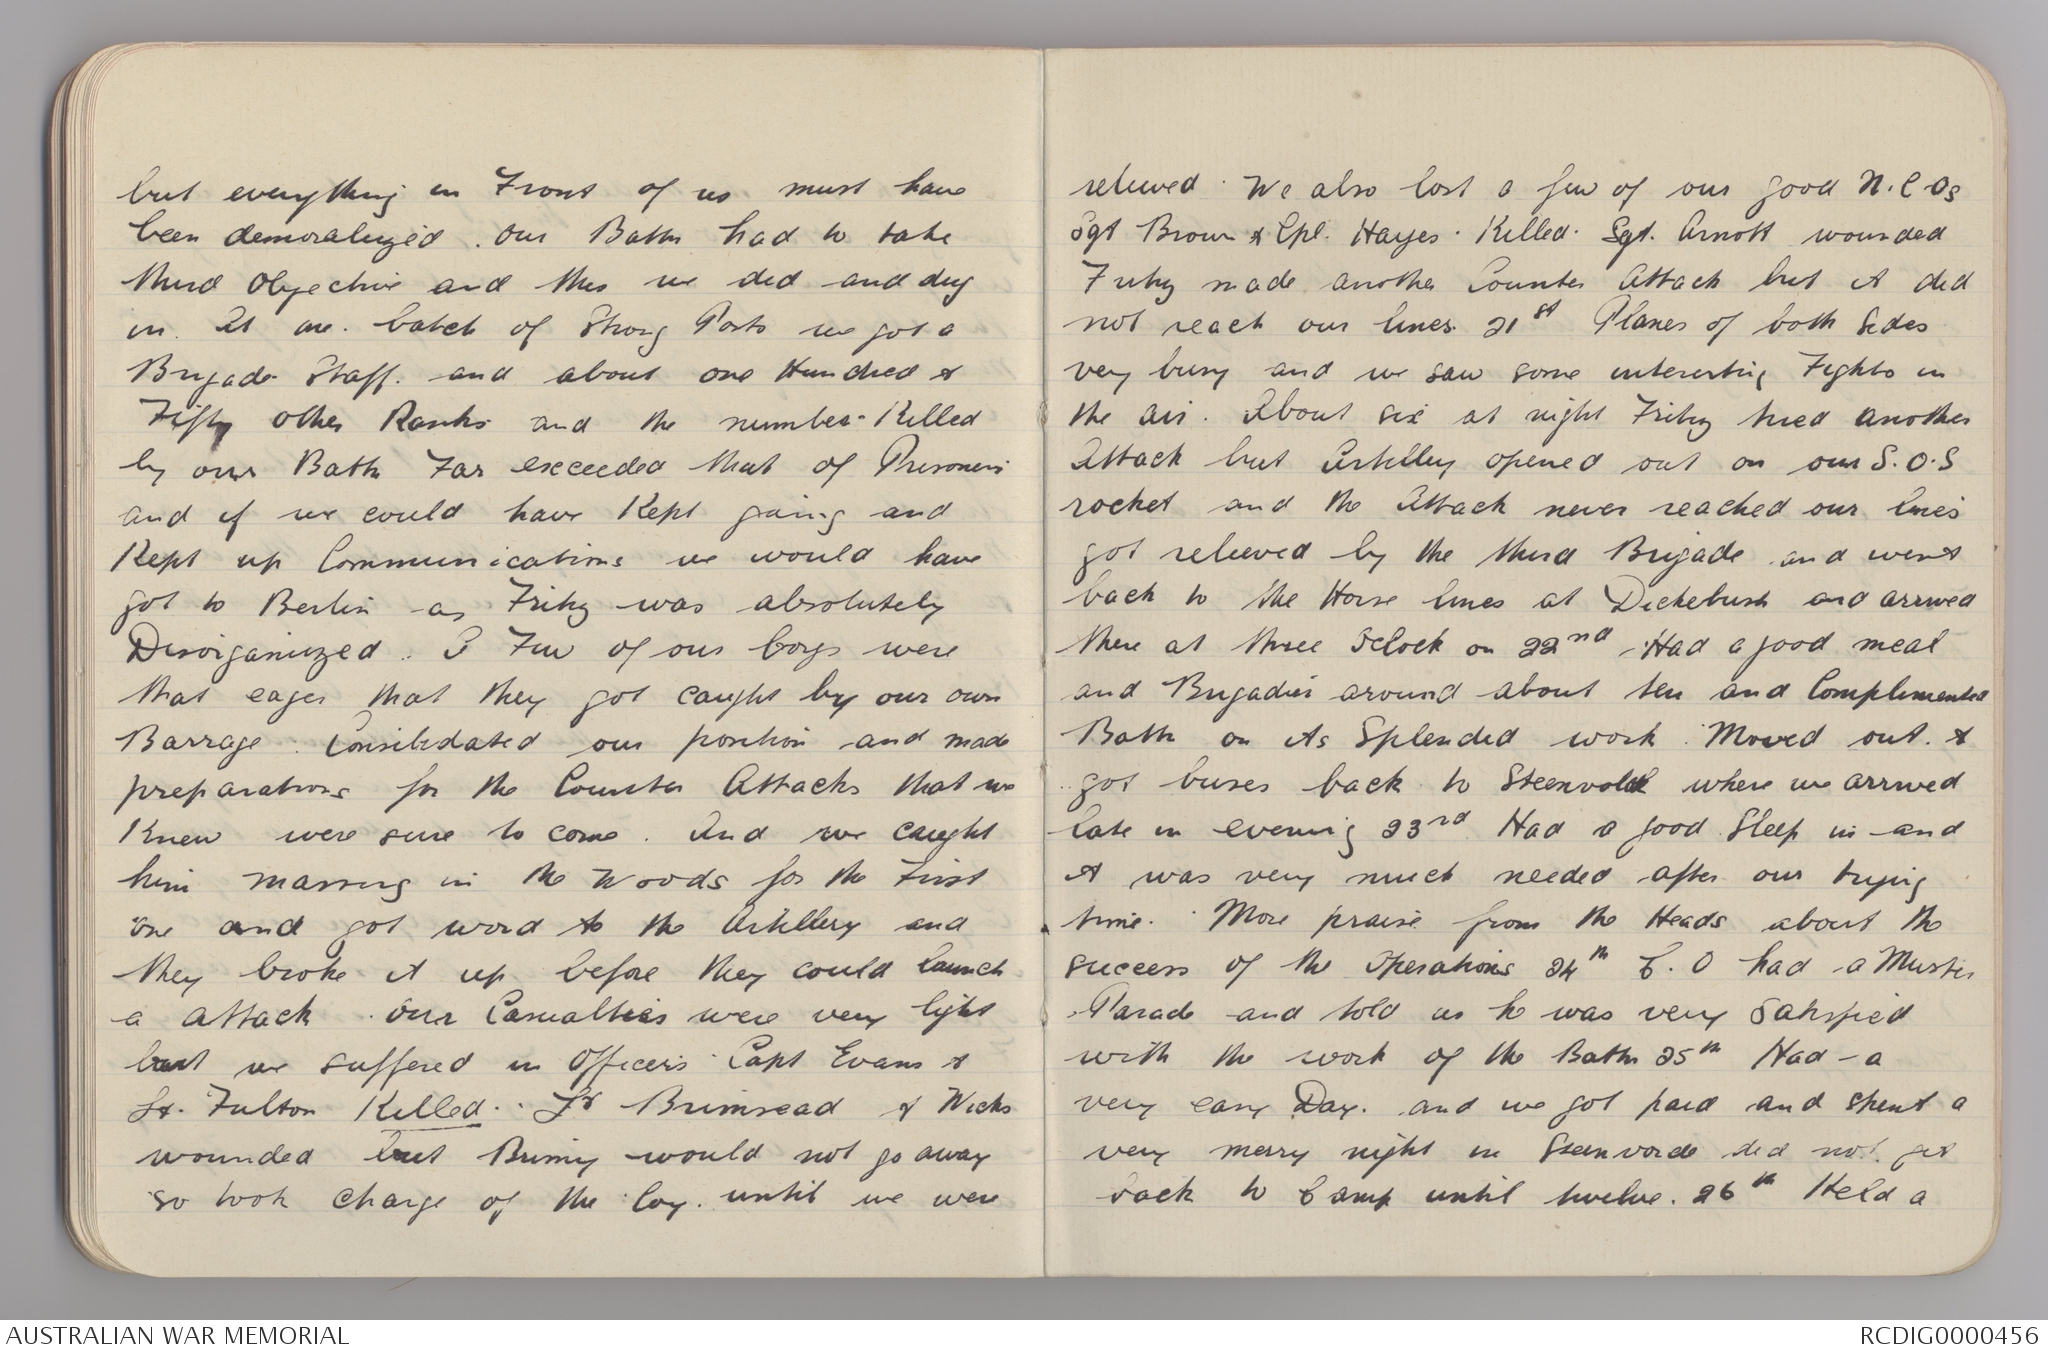 but everything in Front of us must have
been demoralized. Our Battn had to take
third Objective and this we did and dug
in. At one batch of Strong Posts we got a
Brigade Staff. and about one Hundred &
Fifty other Ranks and the number Killed
by our Battn Far exceeded that of Prisoners
and if we could have Kept going and
Kept up Communications we would have
got to Berlin as Fritz was absolutely
Disorganized. A Few of our boys were
that eager that they got caught by our own
Barrage. Consilidated our position and made
preparations for the Counter Attacks that we
Knew were sure to come. And we caught
him massing in the Woods for the First
one and got word to the Artillery and
they broke it up before they could launch
a attack. Our Casualties were very light
but we suffered in Officers Capt Evans &
Lt. Fulton Killed. Lt Brimsead & Wicks
wounded but Brimy would not go away
so took charge of the Coy. until we were
relieved. We also lost a few of our good N.C.Os
Sgt Brown & Cpl. Hayes. Killed. Sgt. Arnott wounded
Fritz made another Counter Attack but it did
not reach our lines. 21st Planes of both Sides
very busy and we saw some interesting Fights in
the air. About six at night Fritz tried another
Attack but Artillery opened out on our S.O.S
rocket and the Attack never reached our lines
got relieved by the third Brigade and went
back to the Horse lines at Dickebush and arrived
there at three Oclock on 22nd. Had a good meal
and Brigadier around about ten and Complimented
Battn on its Splended work. Moved out. &
got buses back to Steenvolde where we arrived
late in evening 23rd Had a good Sleep in and
it was very much needed after our trying
time. More praise from the Heads about the
success of the Operations 24th C.O had a Muster
Parade and told us he was very Satisfied
with the work of the Battn 25th Had a
very easy Day. and we got paid and spent a
very merry night in Steenvorde did not get
back to Camp until twelve. 26th Held a
AUSTRALIAN WAR MEMORIAL
RCDIG0000456